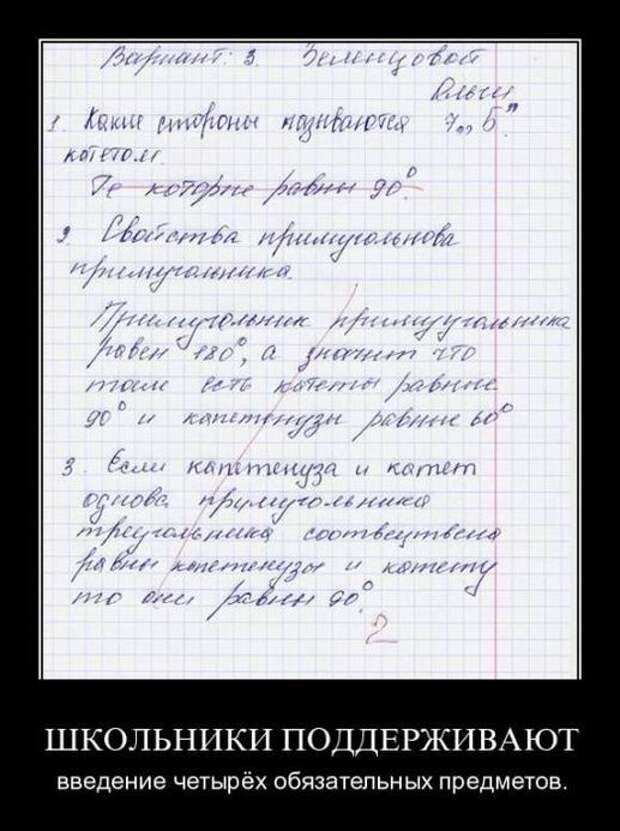 Вариант: 3. Зеленцовой
Ольги
1. Какие стороны называются 7 „Б"
котетом.
Те которые равны 90°.
2. Свойства примугольнова
примугольника.
Примугольник примугугольника
равен 180°, а значит что
там есть катеты равные
90° и капетенузы равные 60°
3. Если капетенуза и катет
однова примугольника
треугольника соотвецтвена
равны капетенузы и катету
то они равны 90°.
2
ШКОЛЬНИКИ ПОДДЕРЖИВАЮТ
введение четырёх обязательных предметов.